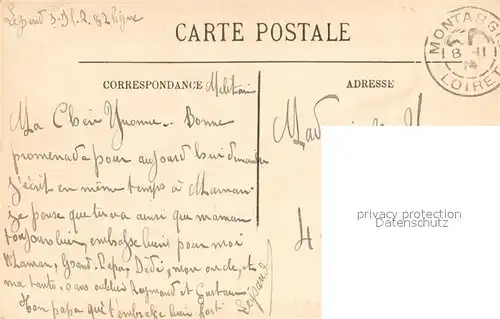 Legrand 3e Dt. C. R. 82 ligne
CARTE POSTALE
MONTARGIS
18 - 11
14
LOIRET
CORRESPONDANCE Militaire
ADRESSE
Ma Chère Yvonne - Bonne
promenade pour aujourd'hui dimanche
j'écrit en même temps à Maman
je pense que tu va ainsi que maman
toujours bien, embrasse bien pour moi
Maman, Grand-Papa, Dédé, mon oncle, et
ma tante. sans oublier Raymond et Gaston
Ton papa qui t'embrasse bien fort
Legrand
Mad
privacy protection
Datenschutz
4